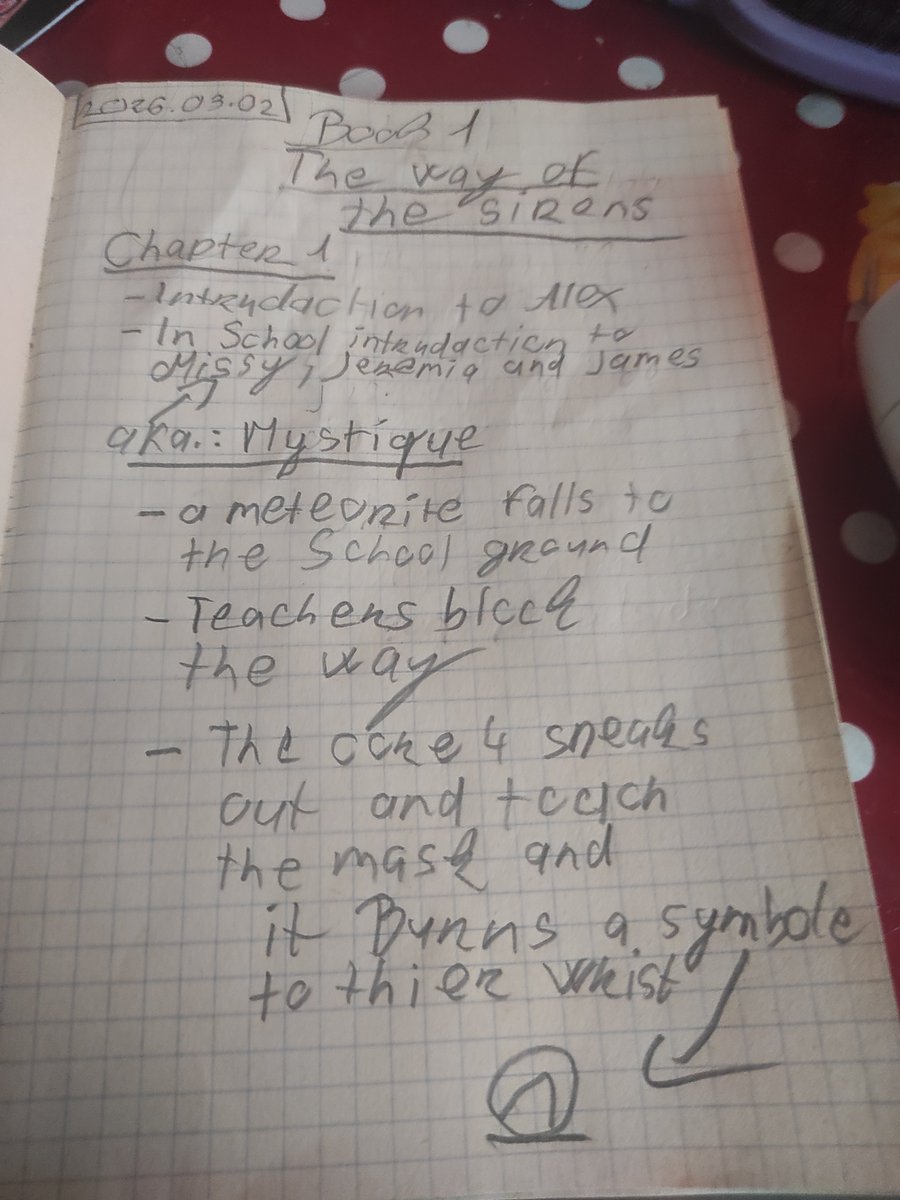 2026.03.02
Book 1
The way of
the sirens
Chapter 1
- Intruduction to Alex
- In School intruduction to
Missy, Jeremia and James
aka.: Mystique
- a meteorite falls to
the School ground
- Teachers block
the way
- The core 4 sneaks
out and toach
the mask and
it Burns a symbole
to thier wrist